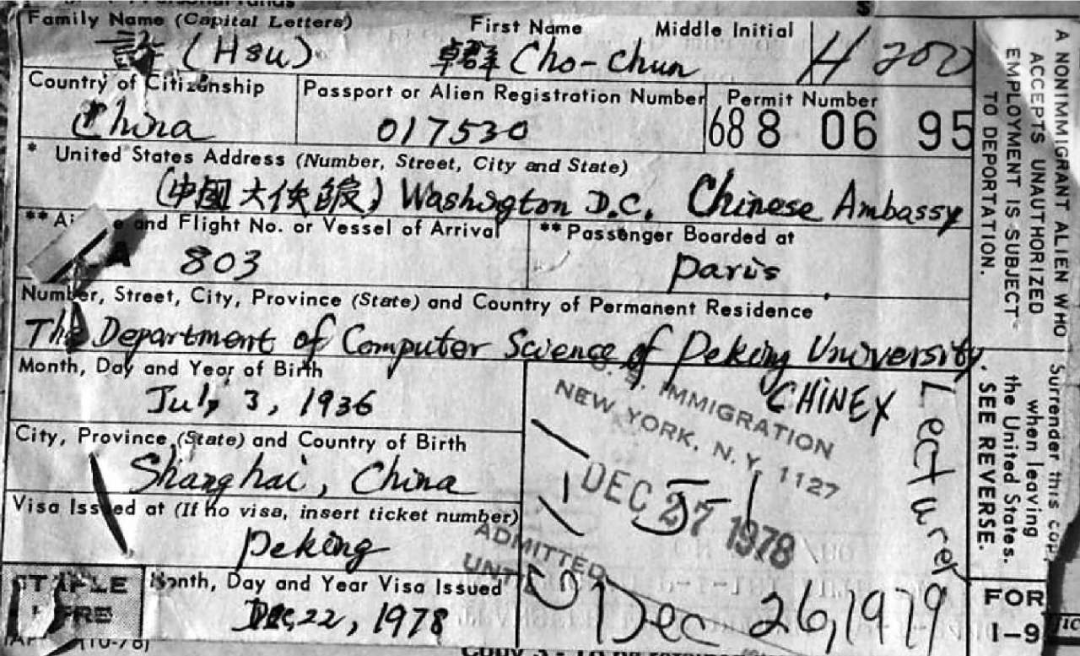 Family Name (Capital Letters) First Name Middle Initial
許 (Hsu) 卓群 Cho-chun H 200
Country of Citizenship Passport or Alien Registration Number Permit Number
China 017530 688 06 95
* United States Address (Number, Street, City and State)
(中國大使館) Washington D.C. Chinese Ambassy
and Flight No. or Vessel of Arrival ** Passenger Boarded at
803 paris
Number, Street, City, Province (State) and Country of Permanent Residence
The Department of Computer Science of Peking University.
Month, Day and Year of Birth
July 3, 1936
City, Province (State) and Country of Birth
Shanghai, China
Visa Issued at (If no visa, insert ticket number)
peking
Month, Day and Year Visa Issued
Dec, 22, 1978
STAPLE
HERE
CHINEX
Lecturer
U. S. IMMIGRATION
NEW YORK, N.Y. 1127
DEC 27 1978
ADMITTED
UNTIL
Dec 26, 1979
A NONIMMIGRANT ALIEN WHO
ACCEPTS UNAUTHORIZED
EMPLOYMENT IS SUBJECT
TO DEPORTATION.
Surrender this copy
when leaving
the United States.
SEE REVERSE.
FOR
I-9